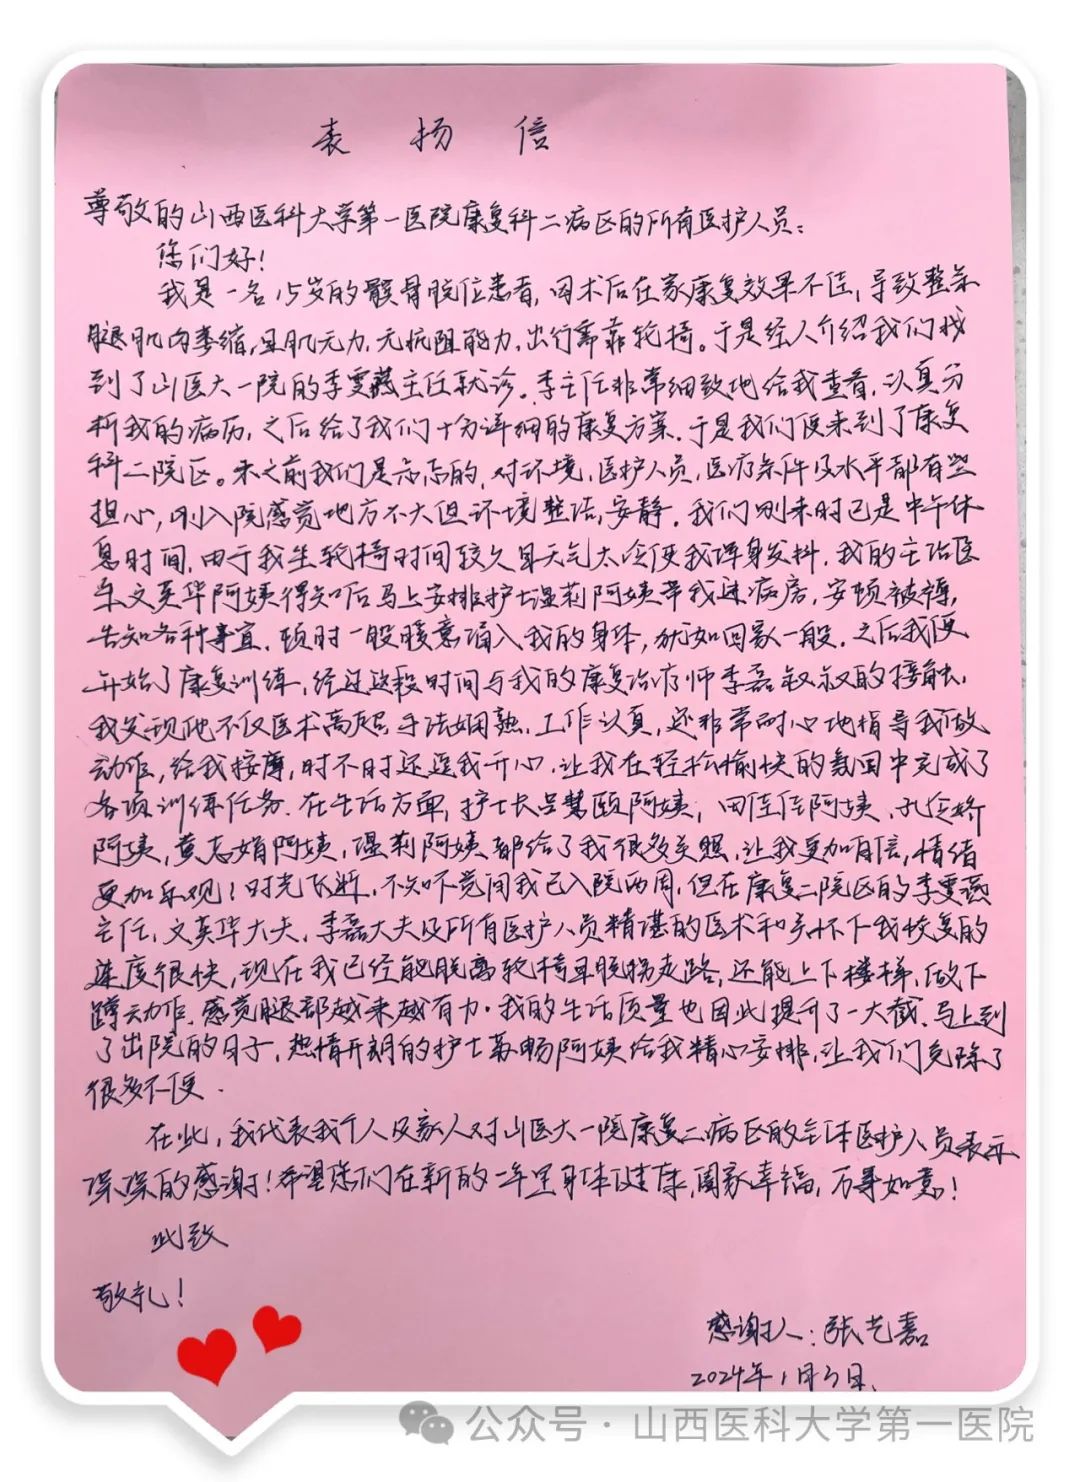 表扬信
尊敬的山西医科大学第一医院康复科二病区的所有医护人员：
您们好！
我是一名15岁的髌骨脱位患者，因术后在家康复效果不佳，导致整条
腿肌肉萎缩，且肌无力，无抗阻能力，出行需靠轮椅。于是经人介绍我们找
到了山医大一院的李雯燕主任就诊。李主任非常细致地给我查看，认真分
析我的病历，之后给了我们十分详细的康复方案，于是我们便来到了康复
科二院区。来之前我们是忐忑的，对环境，医护人员，医疗条件及水平都有些
担心，刚入院感觉地方不大但环境整洁，安静。我们刚来时已是中午休
息时间，由于我坐轮椅时间较久且天气太冷使我浑身发抖，我的主治医
生文英华阿姨得知后马上安排护士温莉阿姨带我进病房，安顿被褥，
告知各种事宜，顿时一股暖意涌入我的身体，犹如回家一般。之后我便
开始了康复训练，经过这段时间与我的康复治疗师李磊叔叔的接触，
我发现他不仅医术高超，手法娴熟，工作认真，还非常耐心地指导我做
动作，给我按摩，时不时还逗我开心，让我在轻松愉快的氛围中完成了
各项训练任务。在生活方面，护士长吕慧颐阿姨，田佳佳阿姨，孔金娇
阿姨，黄志娟阿姨，温莉阿姨都给了我很多关照，让我更加自信，情绪
更加乐观！时光飞逝，不知不觉间我已入院两周，但在康复二院区的李雯燕
主任，文英华大夫，李磊大夫及所有医护人员精湛的医术和关怀下我恢复的
速度很快，现在我已经能脱离轮椅且脱拐走路，还能上下楼梯，做下
蹲动作，感觉腿部越来越有力。我的生活质量也因此提升了一大截，马上到
了出院的日子，热情开朗的护士苏畅阿姨给我精心安排，让我们免除了
很多不便。
在此，我代表我个人及家人对山医大一院康复二病区的全体医护人员表示
深深的感谢！希望您们在新的一年里身体健康，阖家幸福，万事如意！
此致
敬礼！
感谢人：张艺嘉
2024年1月3日.
公众号·山西医科大学第一医院